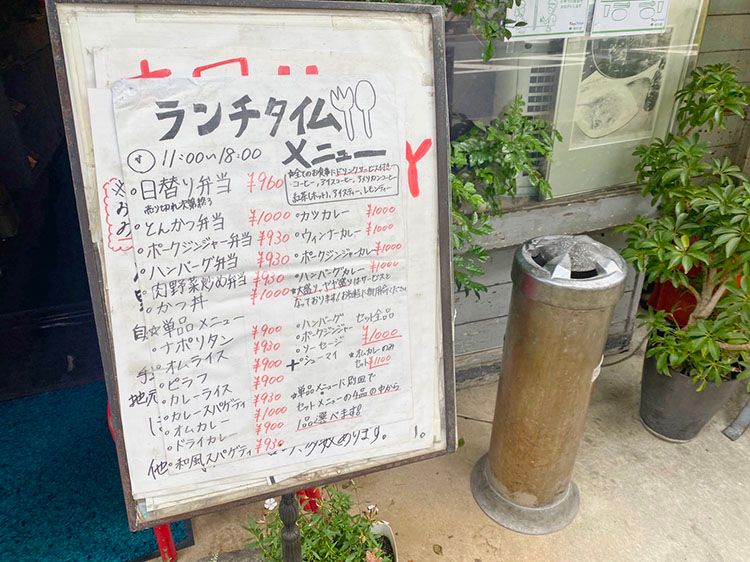 ランチタイム
11:00〜18:00
メニュー
日替り弁当 ¥960
売り切れ次第終り
※全てのお食事にドリンクサービス付き
コーヒー,アイスコーヒー,アメリカンコーヒー
紅茶(ホット),アイスティー,レモンティー
とんかつ弁当 ¥1000
ポークジンジャー弁当 ¥930
ハンバーグ弁当 ¥930
肉野菜炒め弁当 ¥930
かつ丼 ¥1000
カツカレー ¥1000
ウィンナーカレー ¥1000
ポークジンジャーカレー ¥1000
ハンバーグカレー ¥1000
☆大盛り,ヤヤ盛りはサービスと
なっております!お気軽に御用命ください
☆単品メニュー
ナポリタン ¥900
オムライス ¥930
ピラフ ¥900
カレーライス ¥900
カレースパゲティ ¥930
オムカレー ¥1000
ドライカレー ¥900
和風スパゲティ ¥930
ハンバーグ
ポークジンジャー
ソーセージ
+シューマイ
セット全品
¥1000
☆オムカレーのみ
セット¥1100
☆単品メニューに別皿で
セットメニューの4品の中から
1品選べます!
※
お
お
自
手
地元
に
他
あります。